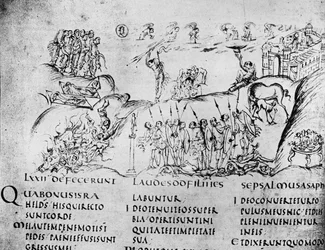 LXXII DEFECERUNT LAUDES DO FILII IES SE PSALMUS ASAPH
QUA BONUS ISRA
HEL DS HIS QUI RECTO
SUNT CORDI
MEI AUTEM PENE MOTI ST
PEDES PAENE EFFUSI SUNT
GRESSUS MEI
LABUNTUR
IDEO TENUIT EOS SUPER
BIA OPERTI SUNT INI
QUITATE ET IMPIETATE
SUA
IDEO CONVERTITUR PO
PULUS MEUS HIC ET DIES
PLENI INVENIENTUR
IN EIS
ET DIXERUNT QUOMODO